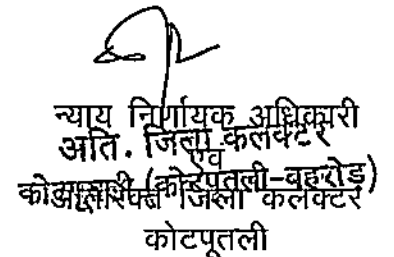 न्याय निर्णायक अधिकारी
अति. जिला कलक्टर
एवं
कोटपूतली (कोटपूतली-बहरोड़)
अतिरिक्त जिला कलक्टर
कोटपूतली